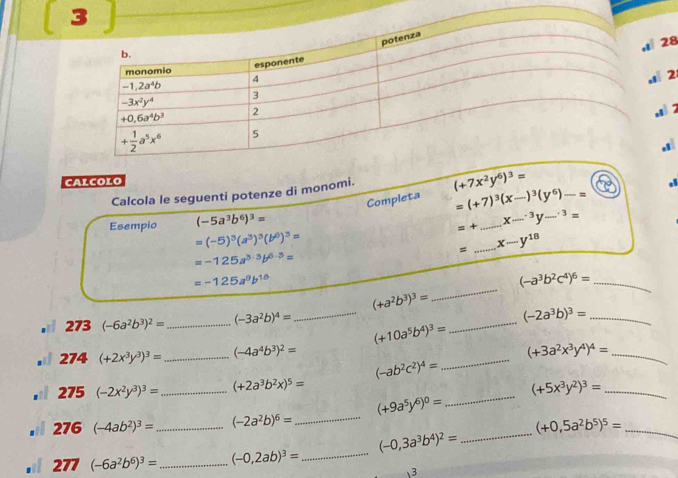 3
b.
monomio esponente potenza
-1,2a⁴b 4
-3x²y⁴ 3
+0,6a⁴b³ 2
+1/2 a⁵x⁶ 5
28
2
CALCOLO
Calcola le seguenti potenze di monomi.
Esempio (-5a³b⁶)³ =
= (-5)³(a³)³(b⁶)³ =
= -125a³·³b⁶·³ =
= -125a⁹b¹⁸
Completa (+7x²y⁶)³ =
= (+7)³(x....)³(y⁶)... =
= + ...... x....·³y....·³ =
= ...... x....y¹⁸
273 (-6a²b³)² = ______ (-3a²b)⁴ = ______ (+a²b³)³ = ______ (-a³b²c⁴)⁶ = ______
274 (+2x³y³)³ = ______ (-4a⁴b³)² = (+10a⁵b⁴)³ = ______ (-2a³b)³ = ______
275 (-2x²y³)³ = ______ (+2a³b²x)⁵ = (-ab²c²)⁴ = ______ (+3a²x³y⁴)⁴ = ______
276 (-4ab²)³ = ______ (-2a²b)⁶ = ______ (+9a⁵y⁶)⁰ = ______ (+5x³y²)³ = ______
277 (-6a²b⁶)³ = ______ (-0,2ab)³ = ______ (-0,3a³b⁴)² = ______ (+0,5a²b⁵)⁵ = ______
)³